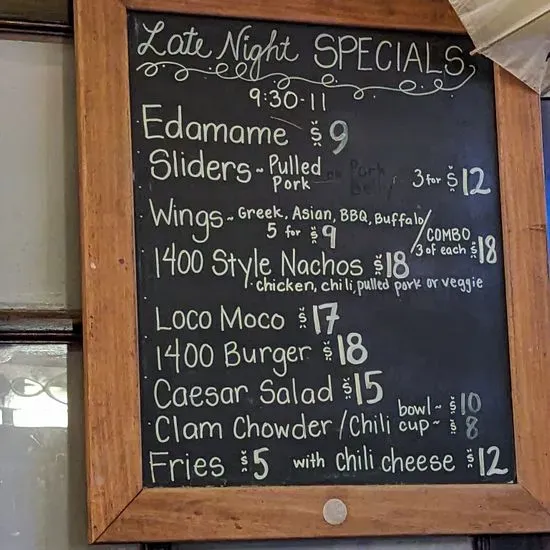 Late Night SPECIALS
9:30-11
Edamame $9
Sliders ~ Pulled Pork 3 for $12
Wings ~ Greek, Asian, BBQ, Buffalo / COMBO
5 for $9 3 of each $18
1400 Style Nachos $18
chicken, chili, pulled pork or veggie
Loco Moco $17
1400 Burger $18
Caesar Salad $15
Clam Chowder / Chili bowl ~ $10
cup ~ $8
Fries $5 with chili cheese $12